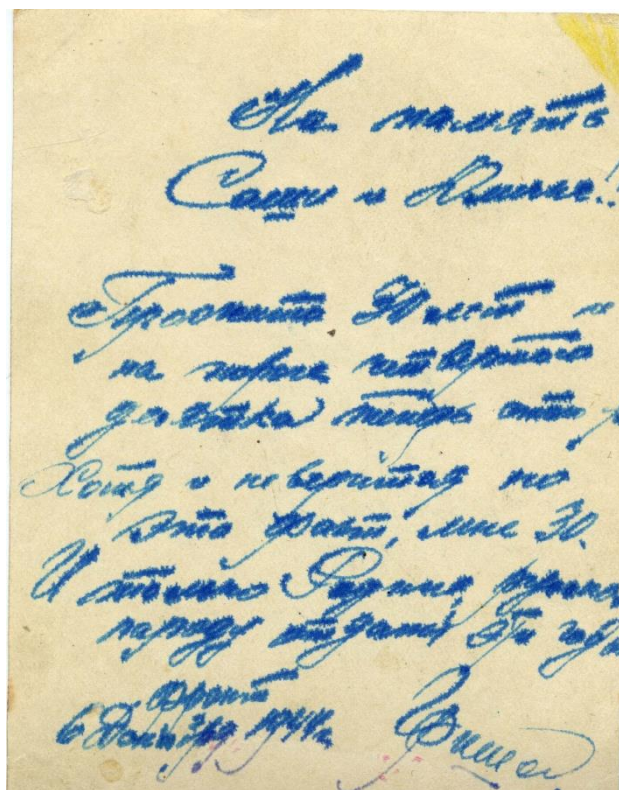 На память
Саши и Юшке!!
Прожито 30 лет и
на пороге четвертого
десятка теперь стою
Хотя и неверится но
это факт, мне 30.
И только Родине,
народу отданы эти года
Фронт
6 Декабря 1944г.
Гриша